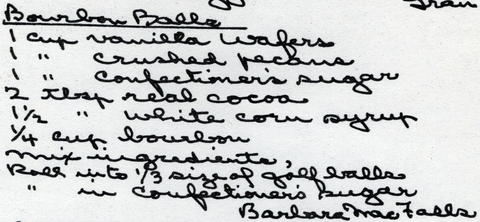 Fran
Bourbon Balls
1 cup vanilla wafers
1 " crushed pecans
1 " confectioner's sugar
2 tbsp real cocoa
1½ " white corn syrup
¼ cup bourbon
Mix ingredients,
Roll into ⅓ size of golf balls
" in confectioner's sugar
Barbara MacFalls